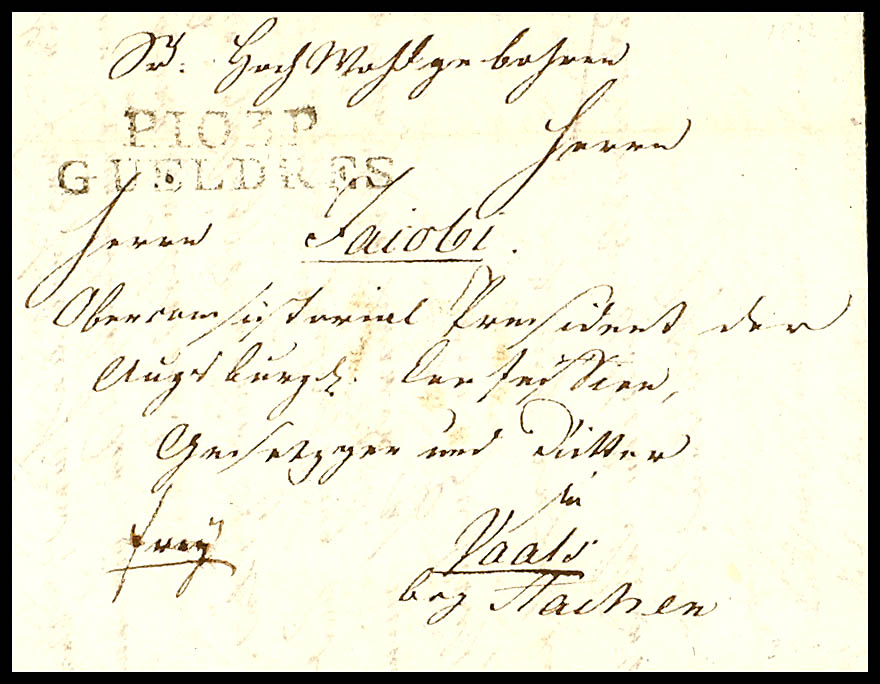 Sr. HochWohlgebohren
P103P
GUELDRES
Herrn
Herrn Jacobi.
Oberconsistorial President der
Augsburg. Confession,
und Ritter
in
frey Vaals
bey Aachen